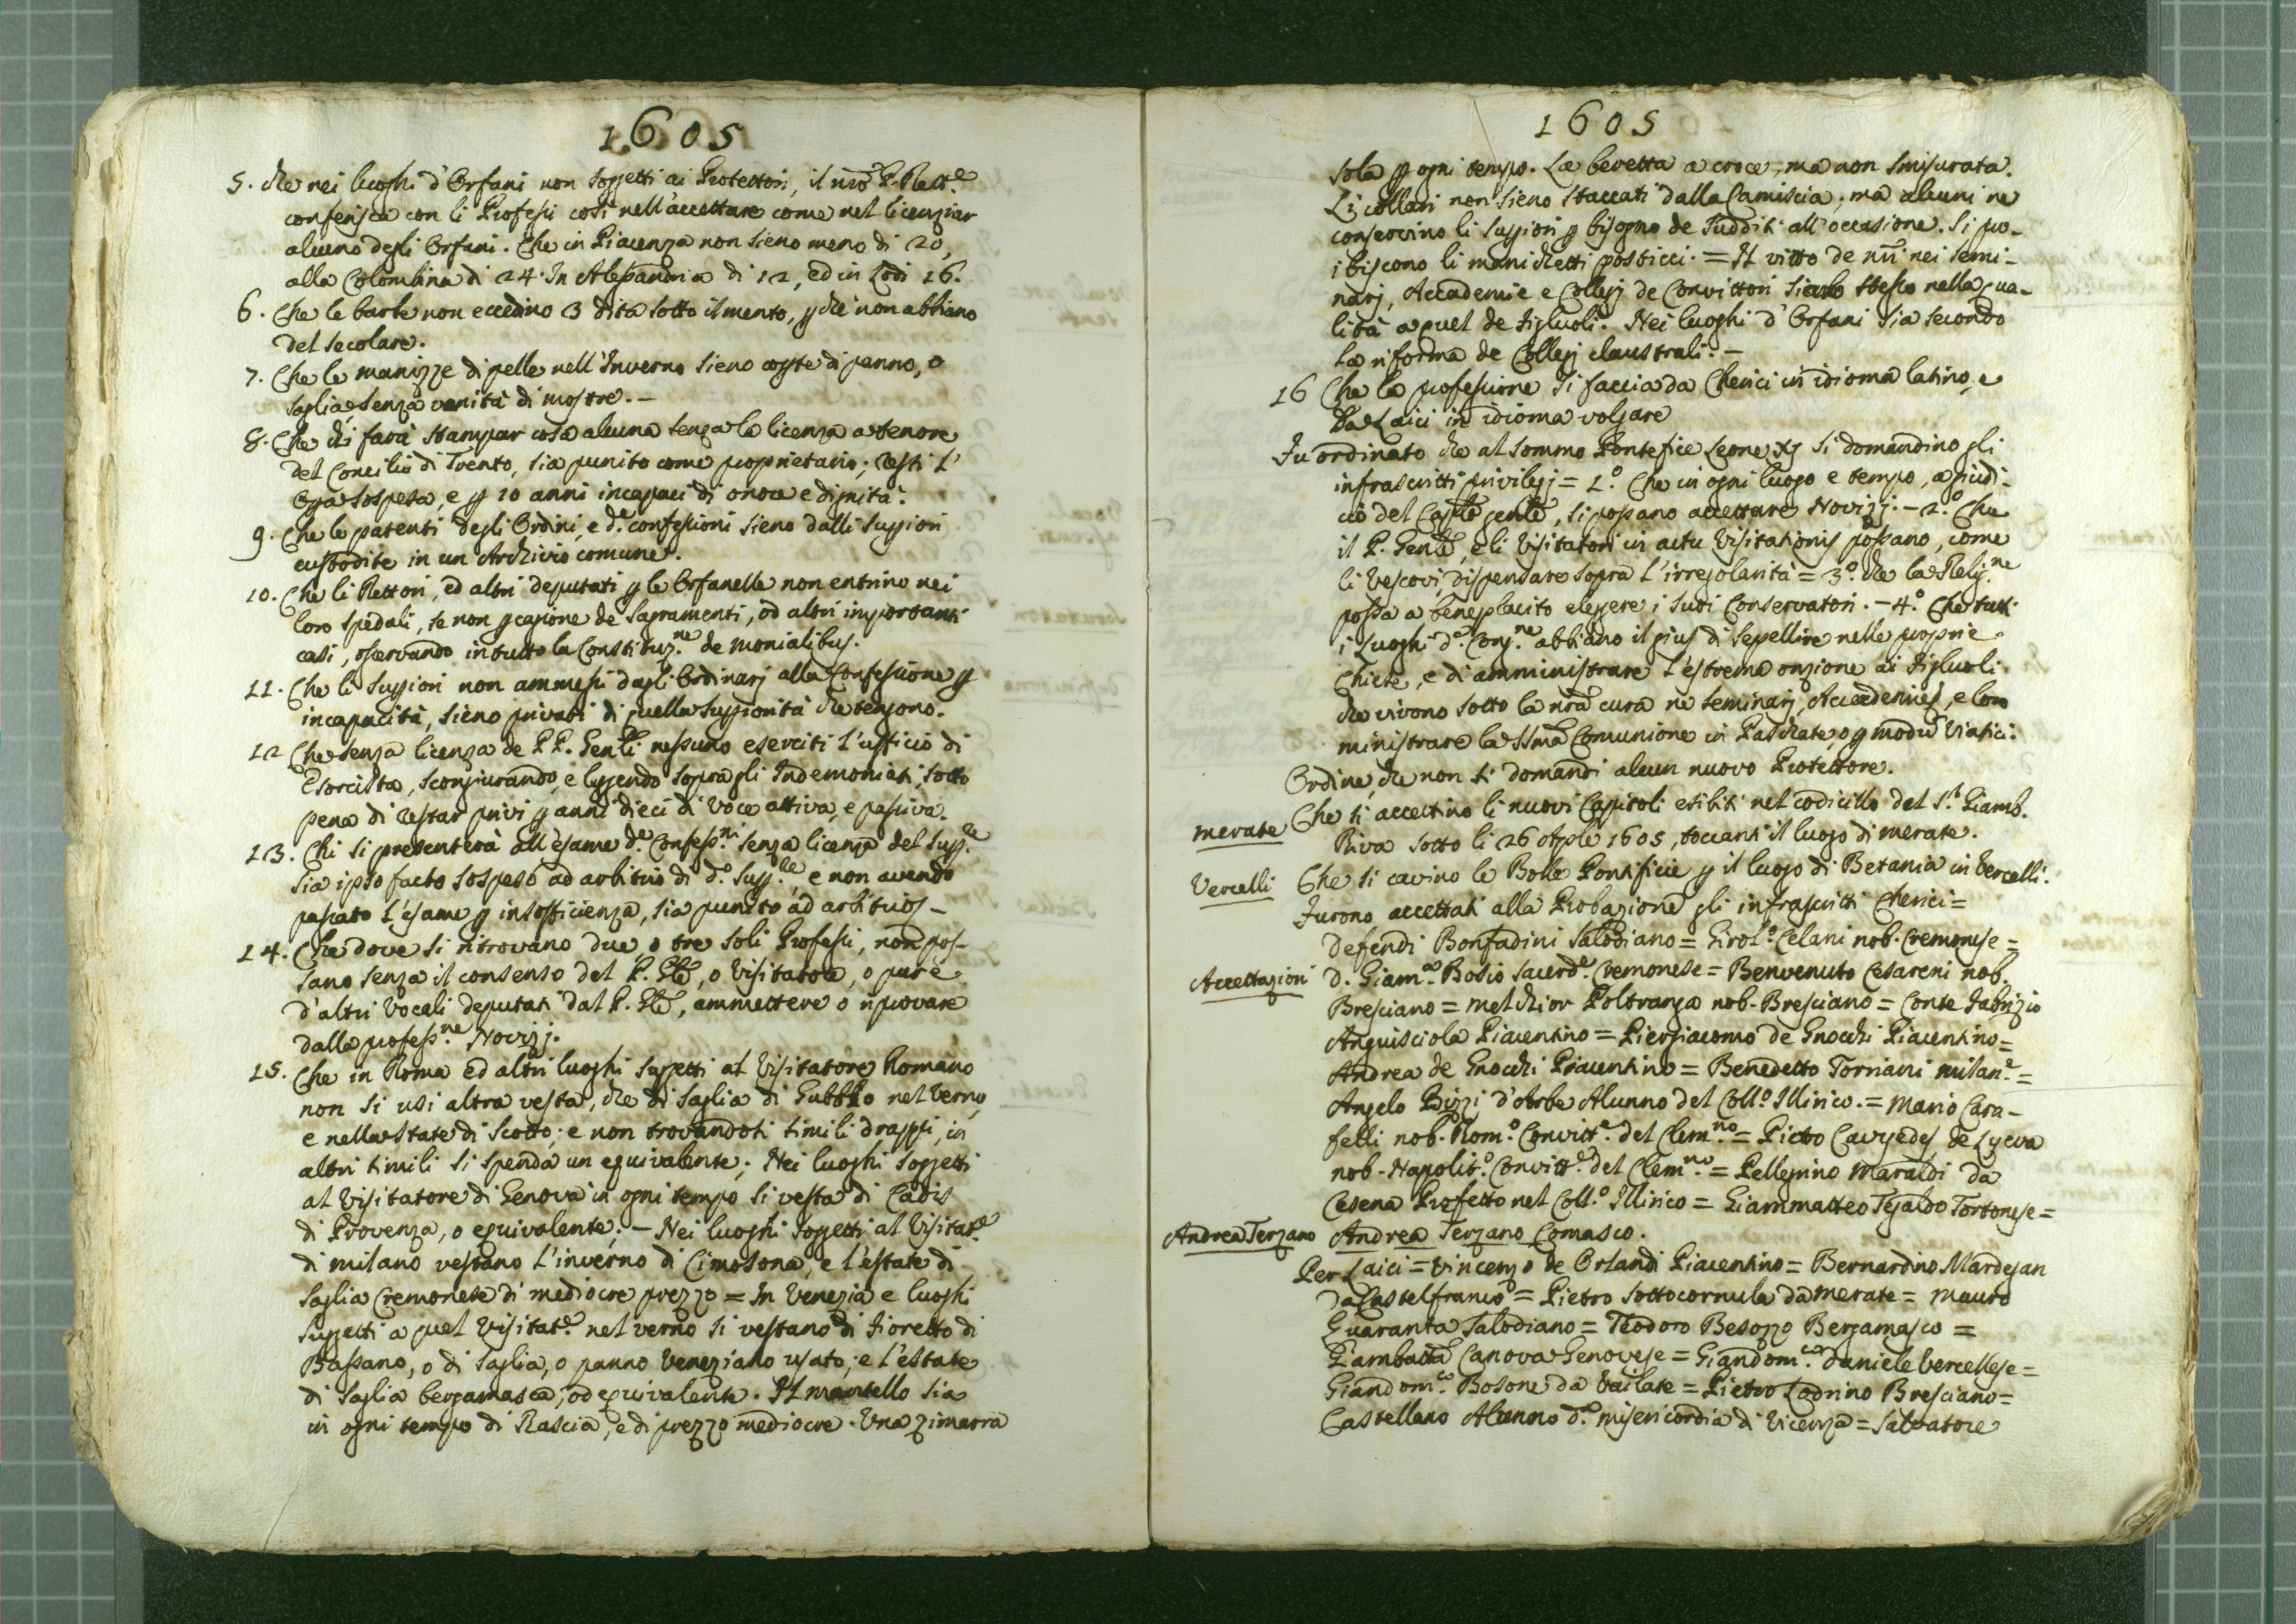 1605
5. che nei luoghi d'Orfani non soggetti ai Protettori, il nro P. Rett.e
conferisca con li Professi così nell'accettare come nel licenziar
alcuno degli Orfani. Che in Piacenza non sieno meno di 20,
alla Colombina di 24. In Alessandria di 12, ed in Lodi 16.
6. Che le barbe non eccedino 3 dita sotto il mento, pche non abbiano
del secolare.
7. Che le manizze di pelle nell'Inverno sieno copte di panno, o
saglia, senza vanità di mostre. –
8. Che chi farà stampar cosa alcuna senza la licenza a tenore
del Concilio di Trento, sia punito come proprietario; resti l'
Opa sospesa, e p 10 anni incapaci di onore e dignità.
9. Che le patenti degli Ordini, e d.e confessioni sieno dalli Suppiori
custodite in un Archivio comune.
10. Che li Rettori, ed altri deputati p le Orfanelle non entrino nei
loro spedali, se non p cagione de Sagramenti, od altri importanti
casi, osservando in tutto la Constituz.ne de Monialibus.
11. Che li Suppiori non ammessi dagli Ordinarj alla Confessione p
incapacità, sieno privati di quella Suppiorità che tengono.
12 Che senza licenza de P P. Genli nessuno eserciti l'ufficio di
Esorcista, scongiurando, e leggendo sopra gli Indemoniati, sotto
pena di restar privi p anni dieci di voce attiva, e passiva.
13. Chi si presenterà all'esame d.e Confess.ni senza licenza del Supp.re
sia ipso facto sospeso ad arbitrio di d.o Supp.re, e non avendo
passato l'esame p insofficienza, sia punito ad arbitrio –
14. Che dove si ritrovano due o tre soli Professi, non pos-
sano senza il consenso del P. Gle, o Visitatore, o pure
d'altri Vocali deputati dal P. Gle, ammettere o riprovare
dalla profess.ne Novizj.
15. Che in Roma ed altri luoghi suggetti al Visitatore Romano
non si usi altra vesta, che di Saglia di Gubbio nel verno,
e nella state di Scotto; e non trovandosi simili drappi, in
altri simili si spenda un equivalente. Nei luoghi soggetti
al Visitatore di Genova in ogni tempo si vesta di Cadis
di Provenza, o equivalente. – Nei luoghi soggetti al Visitat.e
di Milano vestano l'inverno di Cimosona, e l'estate di
saglia Cremonese di mediocre prezzo = In Venezia e luoghi
suggetti a quel Visitat.e nel verno si vestano di Fioretto di
Bassano, o di saglia, o panno Veneziano usato; e l'estate
di saglia bergamasca, od equivalente. Il mantello sia
in ogni tempo di Rascia, e di prezzo mediocre. Una zimarra
1605
sola p ogni tempo. La beretta a croce, ma non smisurata.
Li collari non sieno staccati dalla Camiscia; ma alcuni ne
conservino li Suppiori p bisogno de Sudditi all'occasione. Si pro-
ibiscono li manichetti posticci. = Il vitto de nri nei Semi-
narj, Accademie e Collegj de Convittori sia lo stesso nella qua-
lità a quel de Figliuoli. Nei luoghi d'Orfani sia secondo
la riforma de Collegj claustrali. –
16 Che la professione si faccia da Cherici in idioma latino, e
da Laici in idioma volgare
Fu ordinato che al Sommo Pontefice Leone XI si domandino gli
infrascritti privilegj = 1.o Che in ogni luogo e tempo, a giudi-
cio del Caplo genle, si possano accettare Novizj. – 2.o Che
il P. Genle, e li Visitatori in actu Visitationis possano, come
li Vescovi, dispensare sopra l'irregolarità = 3.o che la Relig.ne
possa a beneplacito eleggere i suoi Conservatori. – 4.o Che tutti
i Luoghi d.a Cong.ne abbiano il gius di sepellire nelle proprie
Chiese, e di amministrare l'estrema onzione ai Figliuoli
che vivono sotto la nra cura ne Seminarj, Accademie, e loro
ministrare la SSma Comunione in Paschate, o p modu Viatici.
Ordine, che non si domandi alcun nuovo Protettore.
Merate Che si accettino li nuovi Capitoli esibiti nel codicillo del S.r Giamb.
Riva sotto li 26 Aple 1605, toccanti il luogo di Merate.
Vercelli Che si cavino le Bolle Pontificie p il luogo di Betania in Vercelli.
Furono accettati alla Probazione gli infrascritti Cherici =
Defendi Bonfadini Salodiano = Girol.o Celani nob. Cremonese =
Accettazioni D. Giam.a Bosio Sacerd.e Cremonese = Benvenuto Cesareni nob.
Bresciano = Melchior Poltranga nob. Bresciano = Conte Fabrizio
Anguisciola Piacentino = Piergiacomo de Gnocchi Piacentino =
Andrea de Gnocchi Piacentino = Benedetto Torriani Milan.e =
Angelo Bizzi d'Arbe Alunno del Coll.o Illirico. = Mario Cara-
felli nob. Rom.o Convitt.e del Clem.no = Pietro de Lyeva
nob. Napolit.o Convitt.e del Clem.no = Pellegrino Maraldi da
Cesena Prefetto nel Coll.o Illirico = Giammatteo Tesaldo Tortonese =
Andrea Terzano Andrea Terzano Comasco.
Per Laici = Vincenzo de Orlandi Piacentino = Bernardino Mardegan
da Castelfranco = Pietro Sottocornula da Merate = Mauro
Guaranta Salodiano = Teodoro Besozzo Bergamasco =
Giambatta Canova Genovese = Giandom.co Daniele Vercellese =
Giandom.co Bosone da Vailate = Pietro Lodrino Bresciano =
Castellano Alunno d.a Misericordia di Vicenza = Salvatore